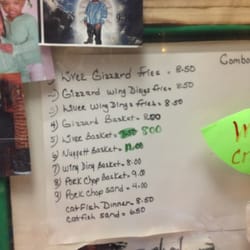 Combo
1) Liver Gizzard fries = 8.50
2) Gizzard Wing Dings fries = 8.50
3) Liver Wing Dings & fries = 8.50
4) Gizzard Basket = 8.00
5) Liver Basket = 8.00
6) Nuggett Basket =
7) Wing Ding Basket = 8.00
8) Pork Chop Basket = 9.00
9) Pork Chop Sand = 4.00
Catfish Dinner = 8.50
Catfish Sand = 6.50